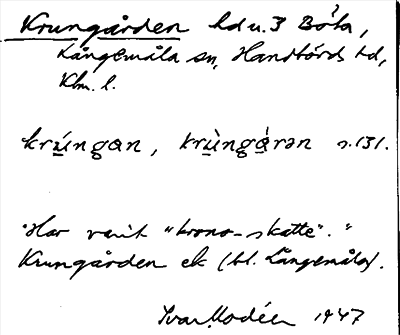 Krungården hd u. 3 Böta,
Långemåla sn, Handbörds hd,
Klm. l.
krúngan, krùngárən s. 131.
"Har varit "krono-skatte"."
Krungården ek (bl. Långemåla).
Ivar Modéer 1947